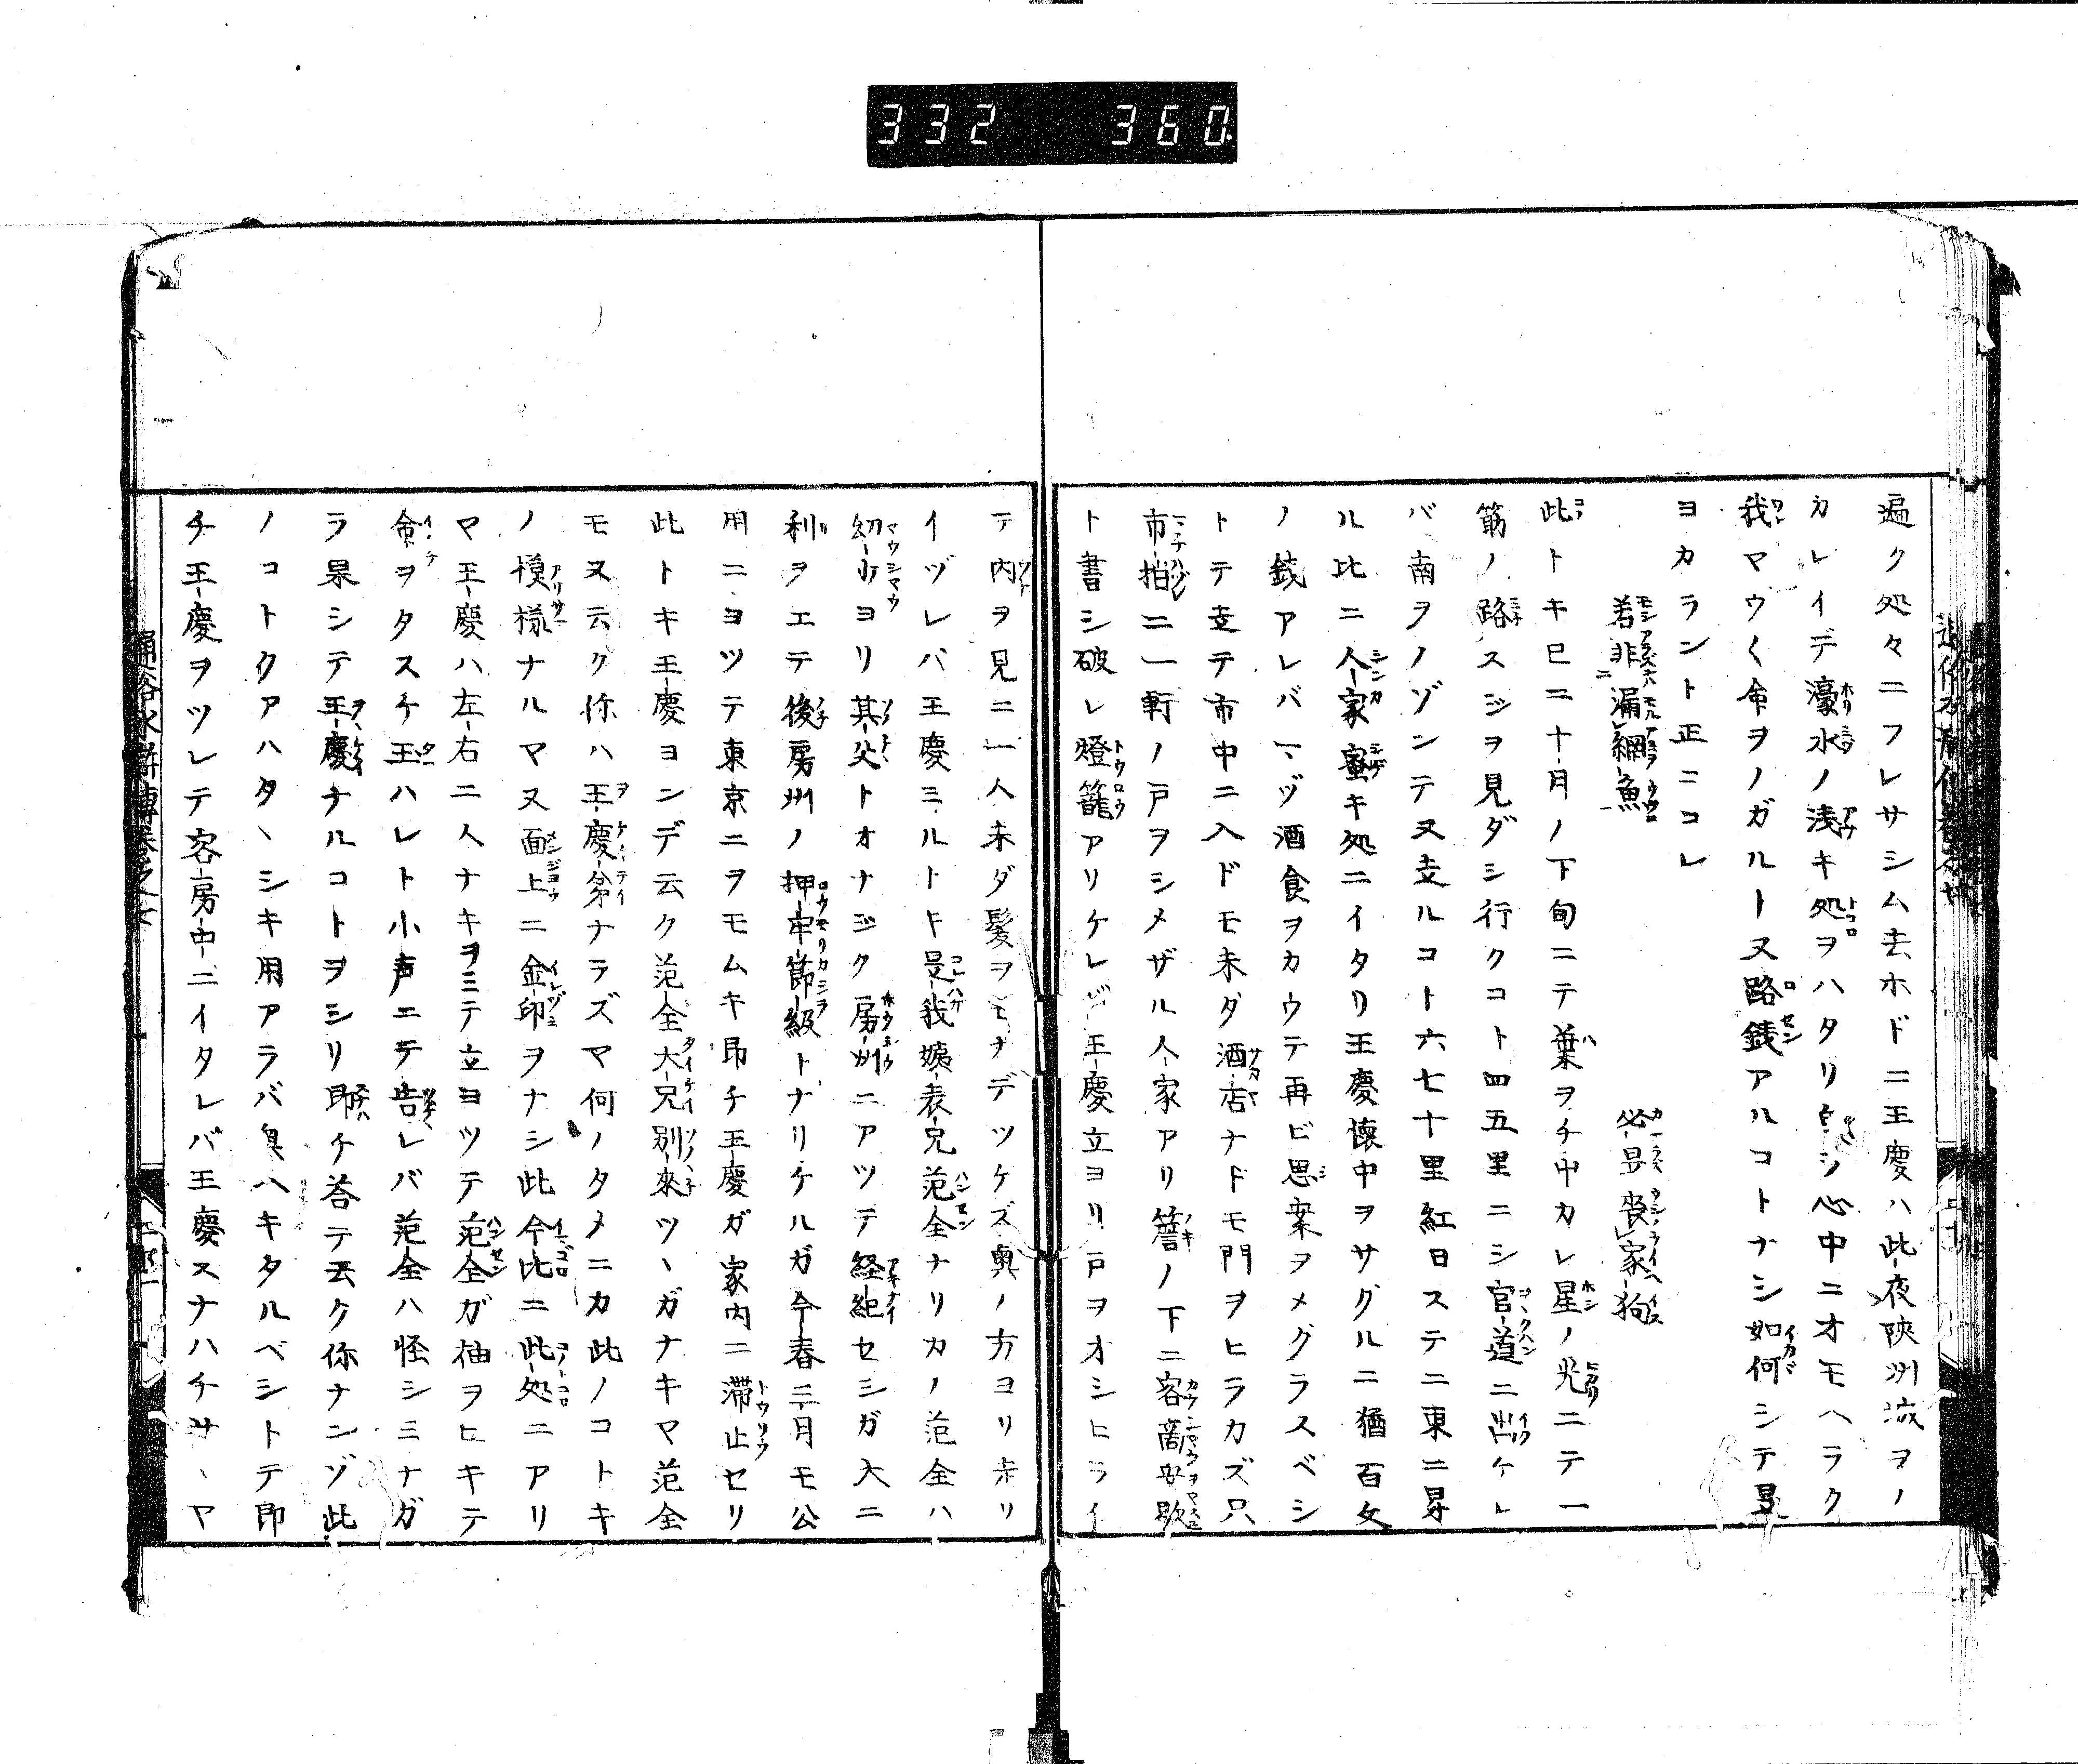 332 360
遍ク処々ニフレサシム去ホドニ王慶ハ此夜陝州城ヲノ
カレイデ濠水ノ浅キ処ヲハタリシ心中ニオモヘラク
我マウ〱命ヲノガルトヌ路銭アルコトナシ如何シテ是
ヨカラント正ニコレ
若非漏網魚 必是喪家狗
此トキ已ニ十月ノ下旬ニテ葉ヲチ中カレ星ノ光ニテ一
筋ノ路スジヲ見ダシ行クコト四五里ニシ官道ニ出ケレ
バ南ヲノゾンテ又走ルコト六七十里紅日ステニ東ニ昇
ル比ニ人家蜜キ処ニイタリ王慶懐中ヲサグルニ猶百文
ノ銭アレバマヅ酒食ヲカウテ再ビ思案ヲメグラスベシ
トテ走テ市中ニ入ドモ未ダ酒店ナドモ門ヲヒラカズ只
市拍ニ一軒ノ戸ヲシメザル人家アリ簷ノ下ニ客商安歇
ト書シ破レ燈籠アリケレバ王慶立ヨリ戸ヲオシヒライ
テ内ヲ見ニ一人未ダ髪ヲモナデツケズ奥ノ方ヨリ来リ
イヅレバ王慶ミルトキ是我姨表兄范全ナリカノ范全ハ
幼少ヨリ其父トオナジク房州ニアツテ経紀セシガ大ニ
利ヲエテ後房州ノ押牢節級トナリケルガ今春二月モ公
用ニヨツテ東京ニヲモムキ即チ王慶ガ家内ニ滞止セリ
此トキ王慶ヨンデ云ク范全大兄別来ツヽガナキマ范全
モ又云ク你ハ王慶弟ナラズマ何ノタメニカ此ノコトキ
ノ模様ナルマ又面上ニ金印ヲナシ此今比ニ此処ニアリ
マ王慶ハ左右ニ人ナキヲミテ立ヨツテ范全ガ袖ヲヒキテ
命ヲタスケ玉ハレト小声ニテ告レバ范全ハ怪シミナガ
ラ果シテ王慶ナルコトヲシリ即チ荅テ云ク你ナンゾ此
ノコトクアハタヽシキ用アラバ奥ヘキタルベシトテ即
チ王慶ヲツレテ客房中ニイタレバ王慶スナハチサヽヤ
通俗水滸傳巻之